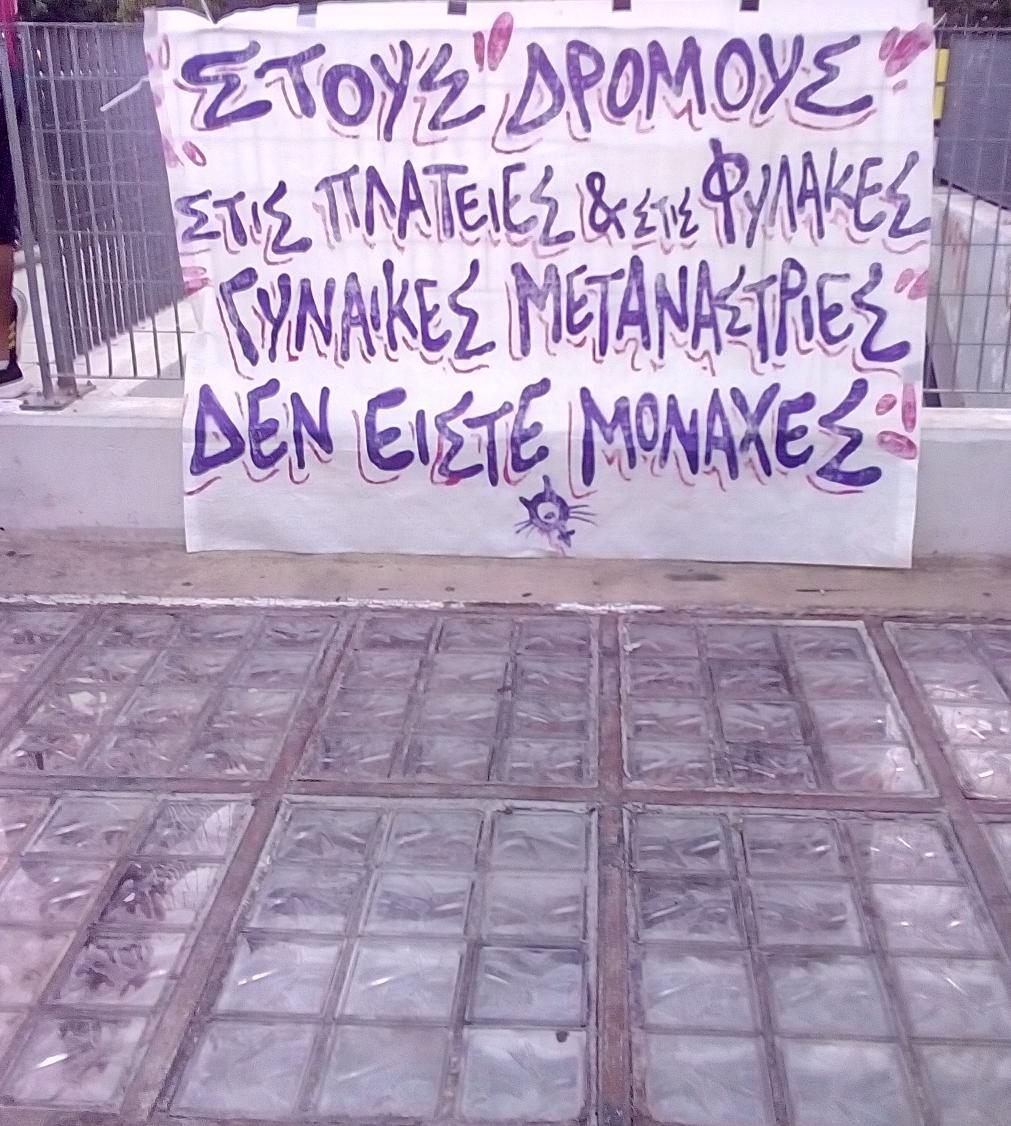 ΣΤΟΥΣ ΔΡΟΜΟΥΣ
ΣΤΙΣ ΠΛΑΤΕΙΕΣ & ΣΤΙΣ ΦΥΛΑΚΕΣ
ΓΥΝΑΙΚΕΣ ΜΕΤΑΝΑΣΤΡΙΕΣ
ΔΕΝ ΕΙΣΤΕ ΜΟΝΑΧΕΣ